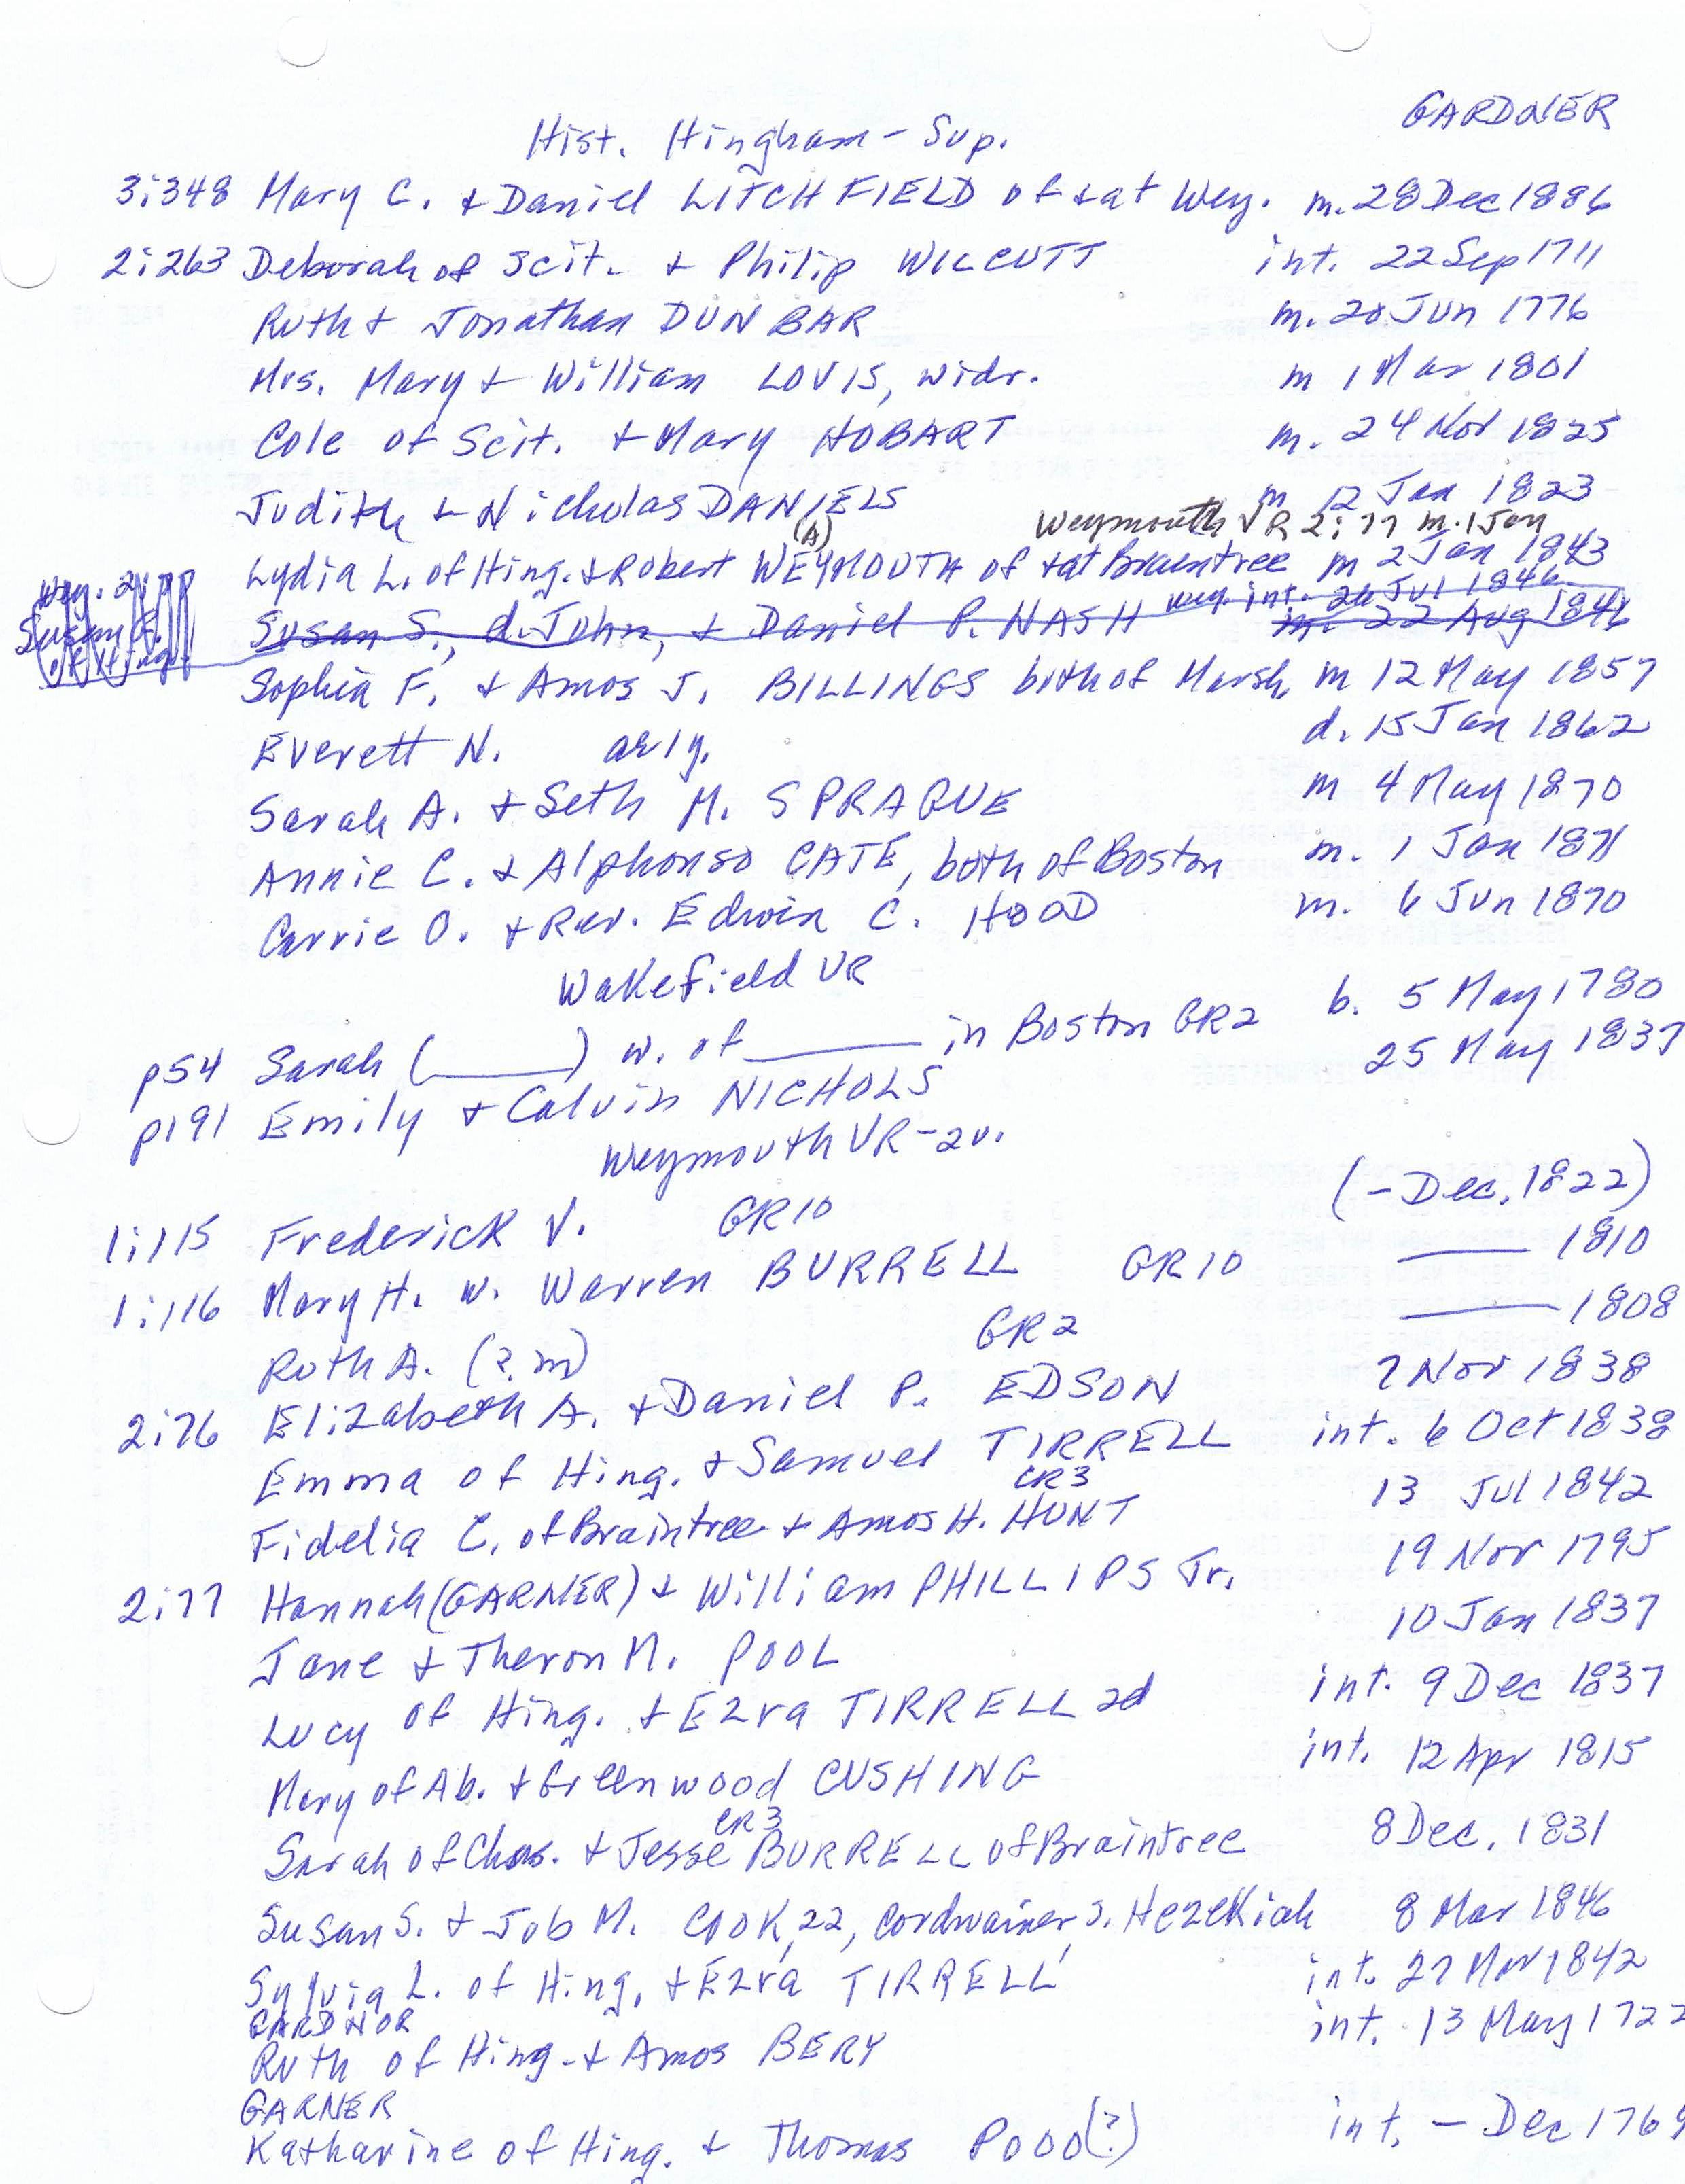 GARDNER
Hist. Hingham - Sup.
3:348 Mary C. + Daniel LITCHFIELD of + at Wey. m. 28 Dec 1886
2:263 Deborah of Scit. + Philip WILCUTT int. 22 Sep 1711
Ruth + Jonathan DUNBAR m. 20 Jun 1776
Mrs. Mary + William LOVIS, widr. m 1 Mar 1801
Cole of Scit. + Mary HOBART m. 24 Nov 1825
Judith + Nicholas DANIELS m 12 Jan 1823
(A) Weymouth VR 2:77 m. 1 Jan
Lydia L. of Hing. + Robert WEYMOUTH of + at Braintree m 2 Jan 1843
Wey. 2:77 Susan S. of Hing.
Susan S., d. John, + Daniel P. NASH wey. int. 26 Jul 1846 m. 22 Aug 1846
Sophia F. + Amos J. BILLINGS both of Marsh. m 12 May 1857
Everett N. ae 1y. d. 15 Jan 1862
Sarah A. + Seth M. SPRAGUE m 4 May 1870
Annie C. + Alphonso CATE, both of Boston m. 1 Jan 1871
Carrie O. + Rev. Edwin C. HOOD m. 6 Jun 1870
Wakefield VR
p54 Sarah (______) w. of ______ in Boston GR2 b. 5 May 1780
p191 Emily + Calvin NICHOLS 25 May 1837
Weymouth VR - 2v.
1:115 Frederick V. GR10 (- Dec. 1822)
1:116 Mary H. w. Warren BURRELL GR10 ____ 1810
Ruth A. (?m) GR2 ____ 1808
2:76 Elizabeth A. + Daniel P. EDSON 7 Nov 1838
Emma of Hing. + Samuel TIRRELL int. 6 Oct 1838
CR3
Fidelia C. of Braintree + Amos H. HUNT 13 Jul 1842
2:77 Hannah (GARNER) + William PHILLIPS Jr. 19 Nov 1795
Jane + Theron M. POOL 10 Jan 1837
Lucy of Hing. + Ezra TIRRELL 2d int. 9 Dec 1837
Mary of Ab. + Greenwood CUSHING int. 12 Apr 1815
CR3
Sarah of Chas. + Jesse BURRELL of Braintree 8 Dec. 1831
Susan S. + Job M. COOK, 22, cordwainer, s. Hezekiah 8 Mar 1846
Sylvia L. of Hing. + Ezra TIRRELL int. 27 Mar 1842
GARDNOR
Ruth of Hing. + Amos BERY int. 13 May 1722
GARNER
Katharine of Hing. + Thomas POOO(?) int. - Dec 1769